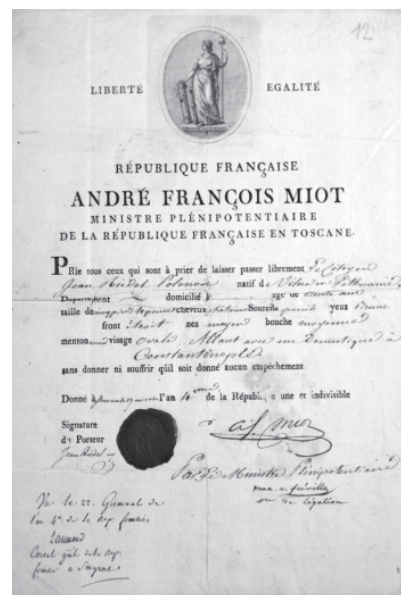 12
LIBERTÉ EGALITÉ
RÉPUBLIQUE FRANÇAISE
ANDRÉ FRANÇOIS MIOT
MINISTRE PLÉNIPOTENTIAIRE
DE LA RÉPUBLIQUE FRANÇAISE EN TOSCANE.
PRie tous ceux qui sont à prier de laisser passer librement Le Citoyen
Jean Riedel Polonois natif de Vilna en Lithuanie
domicilié âgé de trente ans
taille de cheveux Sourcils yeux bruns
front étroit nez moyen bouche moyenne
menton visage ovale Allant avec un domestique à
Constantinople
sans donner ni souffrir qu'il soit donné aucun empêchement
Donné à l'an 4 de la République une et indivisible
Signature
du Porteur
Jean Riedel
Miot
Par Le Ministre Plénipotentiaire
de légation
Vu le 22 Germinal de
l'an 4e de la Rep.
Consul gal de la Rep.
à Smyrne